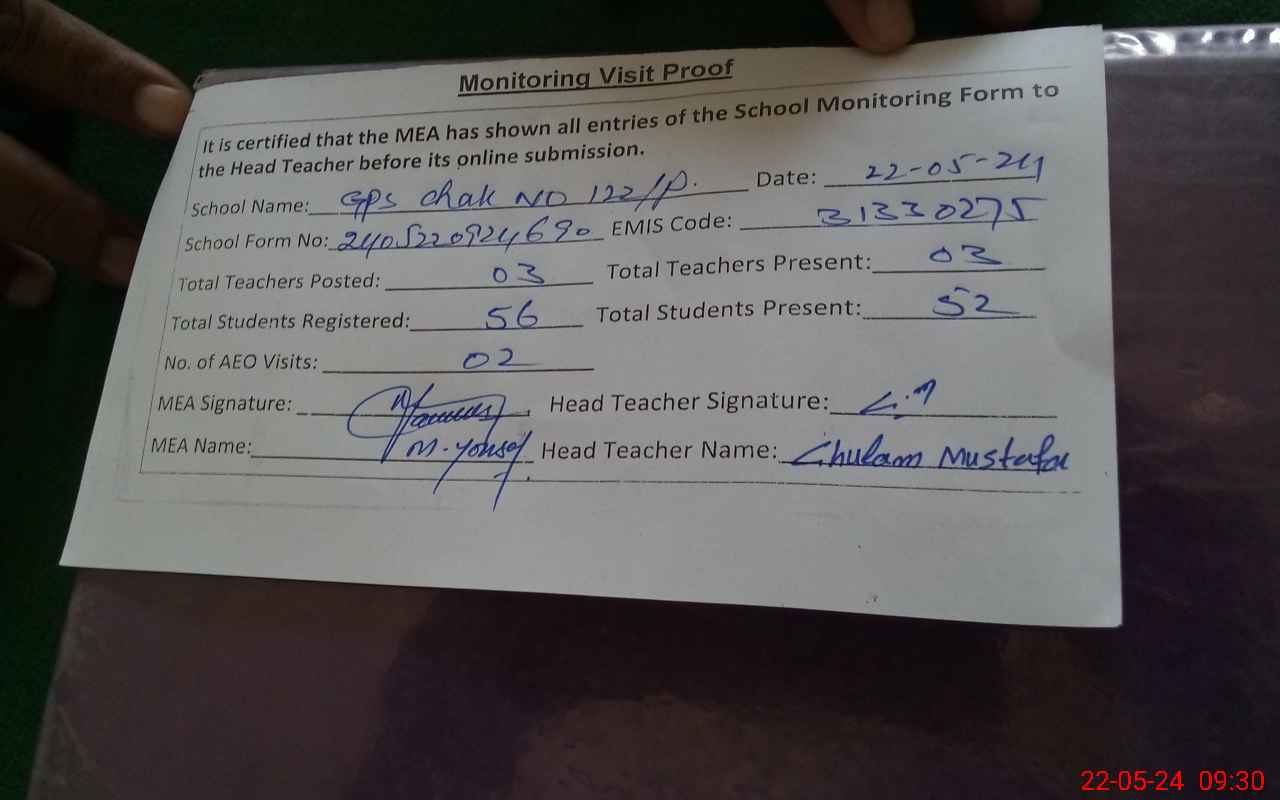 Monitoring Visit Proof
It is certified that the MEA has shown all entries of the School Monitoring Form to
the Head Teacher before its online submission.
School Name: GPS Chak NO 122/P. Date: 22-05-24
School Form No: 2405220924690 EMIS Code: 31330275
Total Teachers Posted: 03 Total Teachers Present: 03
Total Students Registered: 56 Total Students Present: 52
No. of AEO Visits: 02
MEA Signature: Head Teacher Signature:
MEA Name: M. Yousaf Head Teacher Name: Ghulam Mustafa
22-05-24 09:30